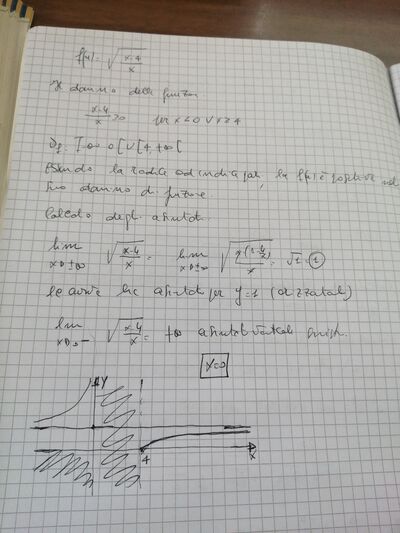 f(x) = √(x-4/x)
Il dominio della funzione
x-4/x ≥0 per x<0 ∨ x≥4
Df: ]-∞ 0[ ∪ [4, +∞[
Essendo la radice ad indice pari, la f(x) è positiva nel
suo dominio di funzione
Calcolo degli asintoti
lim x→±∞ √(x-4/x) = lim x→±∞ √(x(1-4/x)/x) = √1 = 1
asintoto per y=1 (orizzontale)
lim x→0- √(x-4/x) = +∞ asintoto verticale
x=0
Y
4
X